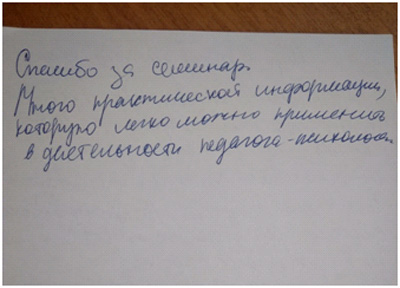 Спасибо за семинар.
Много практической информации,
которую легко можно применить
в деятельности педагога-психолога.